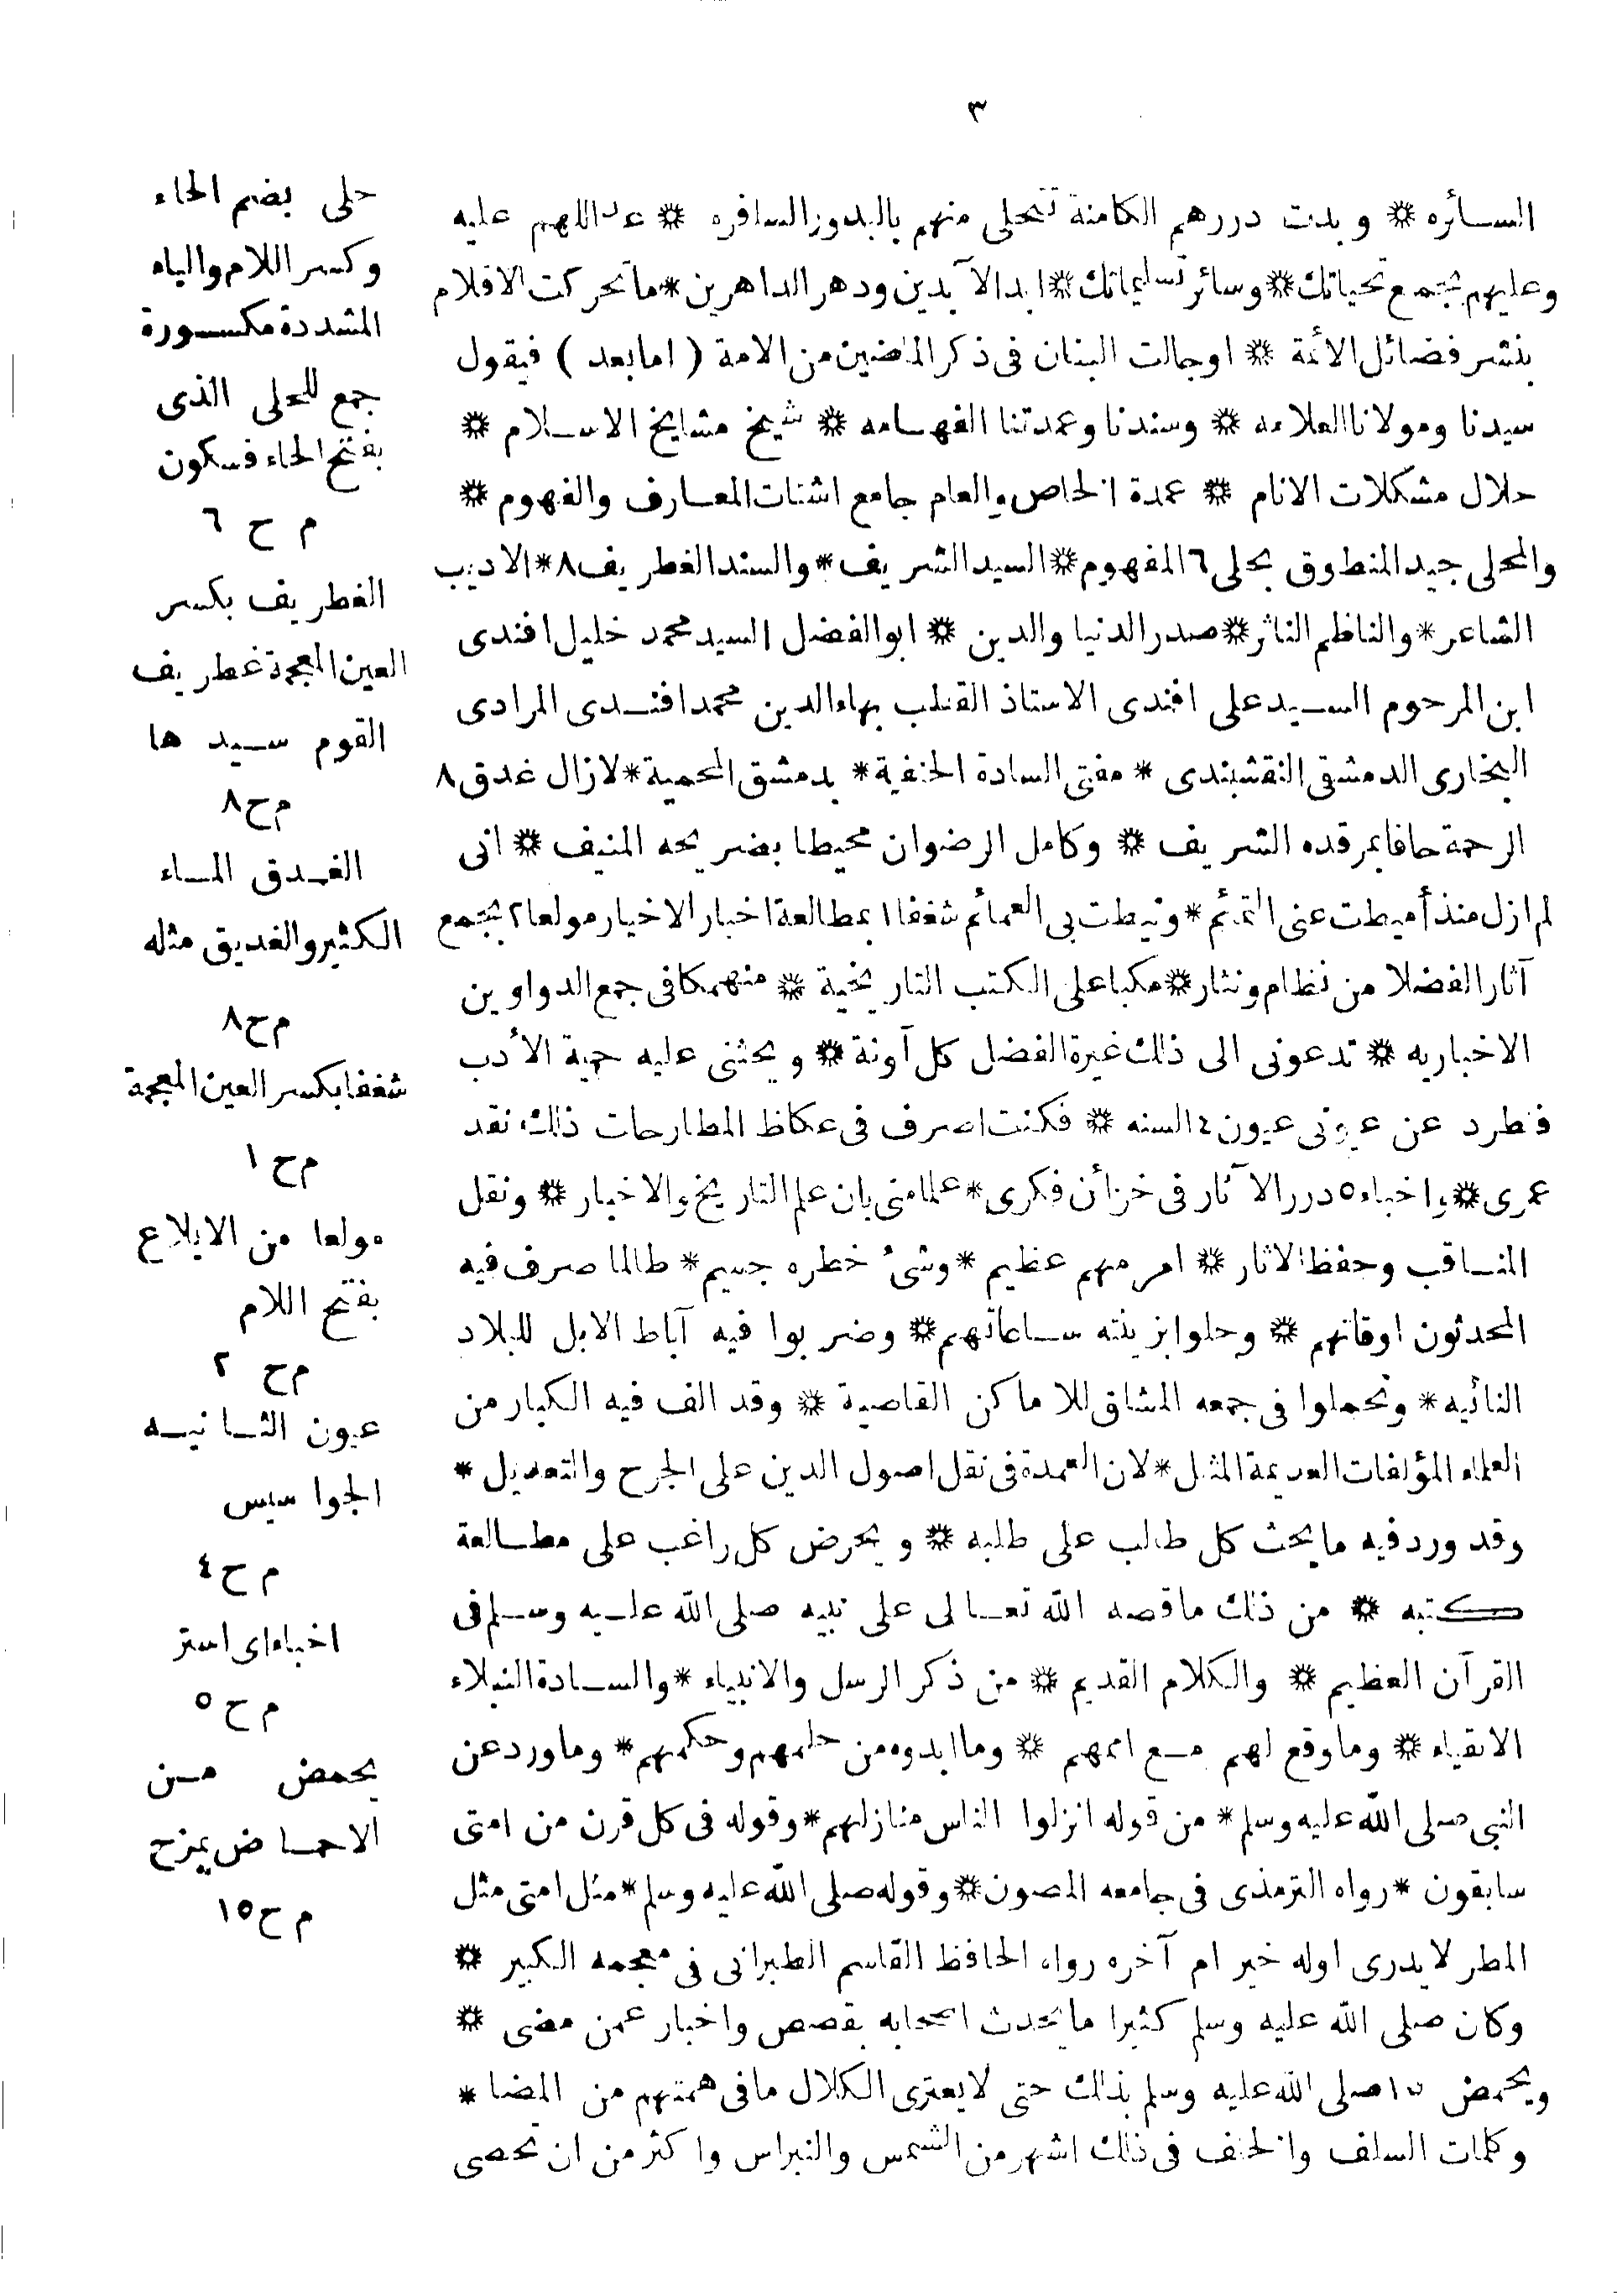 ٣
السائره * وبدت دررهم الكامنة تتحلى منهم بالبدور السافره * عد اللهم عليه
وعليهم بجمع تحياتك * وسائر تسليماتك * ابد الآبدين ودهر الداهرين * ما تحركت الاقلام
بنشر فضائل الائمة * اوجالت البنان فى ذكر الماضين من الامة ( اما بعد ) فيقول
سيدنا ومولانا العلامه * وسندنا وعمدتنا الفهامه * شيخ مشايخ الاسلام *
حلال مشكلات الانام * عمدة الخاص والعام جامع اشتات المعارف والفهوم *
والمحلى جيد المنطوق بحلى ٦ المفهوم * السيد الشريف * والسند الغطريف ٨ * الاديب
الشاعر * والناظم الناثر * صدر الدنيا والدين * ابو الفضل السيد محمد خليل افندى
ابن المرحوم السيد على افندى الاستاذ القطب بهاء الدين محمد افندى المرادى
البخارى الدمشقى النقشبندى * مفتى السادة الحنفية * بدمشق المحمية * لازال غدق ٨
الرحمة حافا بمرقده الشريف * وكامل الرضوان محيطا بضريحه المنيف * انى
لم ازل منذ أميطت عنى التمائم * ونيطت بى العمائم شغفا ١ بمطالعة اخبار الاخيار مولعا ٢ بجمع
آثار الفضلا من نظام ونثار * مكبا على الكتب التاريخية * منهمكا فى جمع الدواوين
الاخباريه * تدعونى الى ذلك غيرة الفضل كل آونة * ويحثنى عليه حمية الأدب
فتطرد عن عيونى عيون ٤ السنه * فكنت اصرف فى عكاظ المطارحات ذلك نقد
عمرى * واخباء ٥ درر الآثار فى خزائن فكرى * علما منى بان علم التاريخ والاخبار * ونقل
المناقب وحفظ الاثار * امر مهم عظيم * وشئ خطره جسيم * طالما صرف فيه
المحدثون اوقاتهم * وحلوا بزينته ساعاتهم * وضربوا فيه آباط الابل للبلاد
النائيه * وتحملوا فى جمعه المشاق للاماكن القاصية * وقد الف فيه الكبار من
العلماء المؤلفات العديمة المثل * لان العمدة فى نقل اصول الدين على الجرح والتعديل *
وقد ورد فيه ما يحث كل طالب على طلبه * ويحرض كل راغب على مطالعة
كتبه * من ذلك ما قصه الله تعالى على نبيه صلى الله عليه وسلم فى
القرآن العظيم * والكلام القديم * من ذكر الرسل والانبياء * والسادة النبلاء
الاتقياء * وما وقع لهم مع اممهم * وما ابدوه من حلمهم وحكمهم * وما ورد عن
النبى صلى الله عليه وسلم * من قوله انزلوا الناس منازلهم * وقوله فى كل قرن من امتى
سابقون * رواه الترمذى فى جامعه المصون * وقوله صلى الله عليه وسلم * مثل امتى مثل
المطر لا يدرى اوله خير ام آخره رواه الحافظ القاسم الطبرانى فى معجمه الكبير *
وكان صلى الله عليه وسلم كثيرا ما يحدث اصحابه بقصص واخبار عمن مضى *
ويحمض ١٥ صلى الله عليه وسلم بذلك حتى لا يعترى الكلال ما فى همتهم من المضا *
وكلمات السلف والخلف فى ذلك اشهر من الشمس والنبراس واكثر من ان تحصى
حلى بضم الحاء
وكسر اللام والياء
المشددة مكسورة
جمع للحلى الذى
بفتح الحاء فسكون
م ح ٦
الغطريف بكسر
الغين المعجمة غطريف
القوم سيدها
م ح ٨
الغدق الماء
الكثير والغديق مثله
م ح ٨
شغفا بكسر الغين المعجمة
م ح ١
مولعا من الايلاع
بفتح اللام
م ح ٢
عيون الثانيه
الجواسيس
م ح ٤
اخباء اى استر
م ح ٥
يحمض من
الاحماض يمزح
م ح ١٥